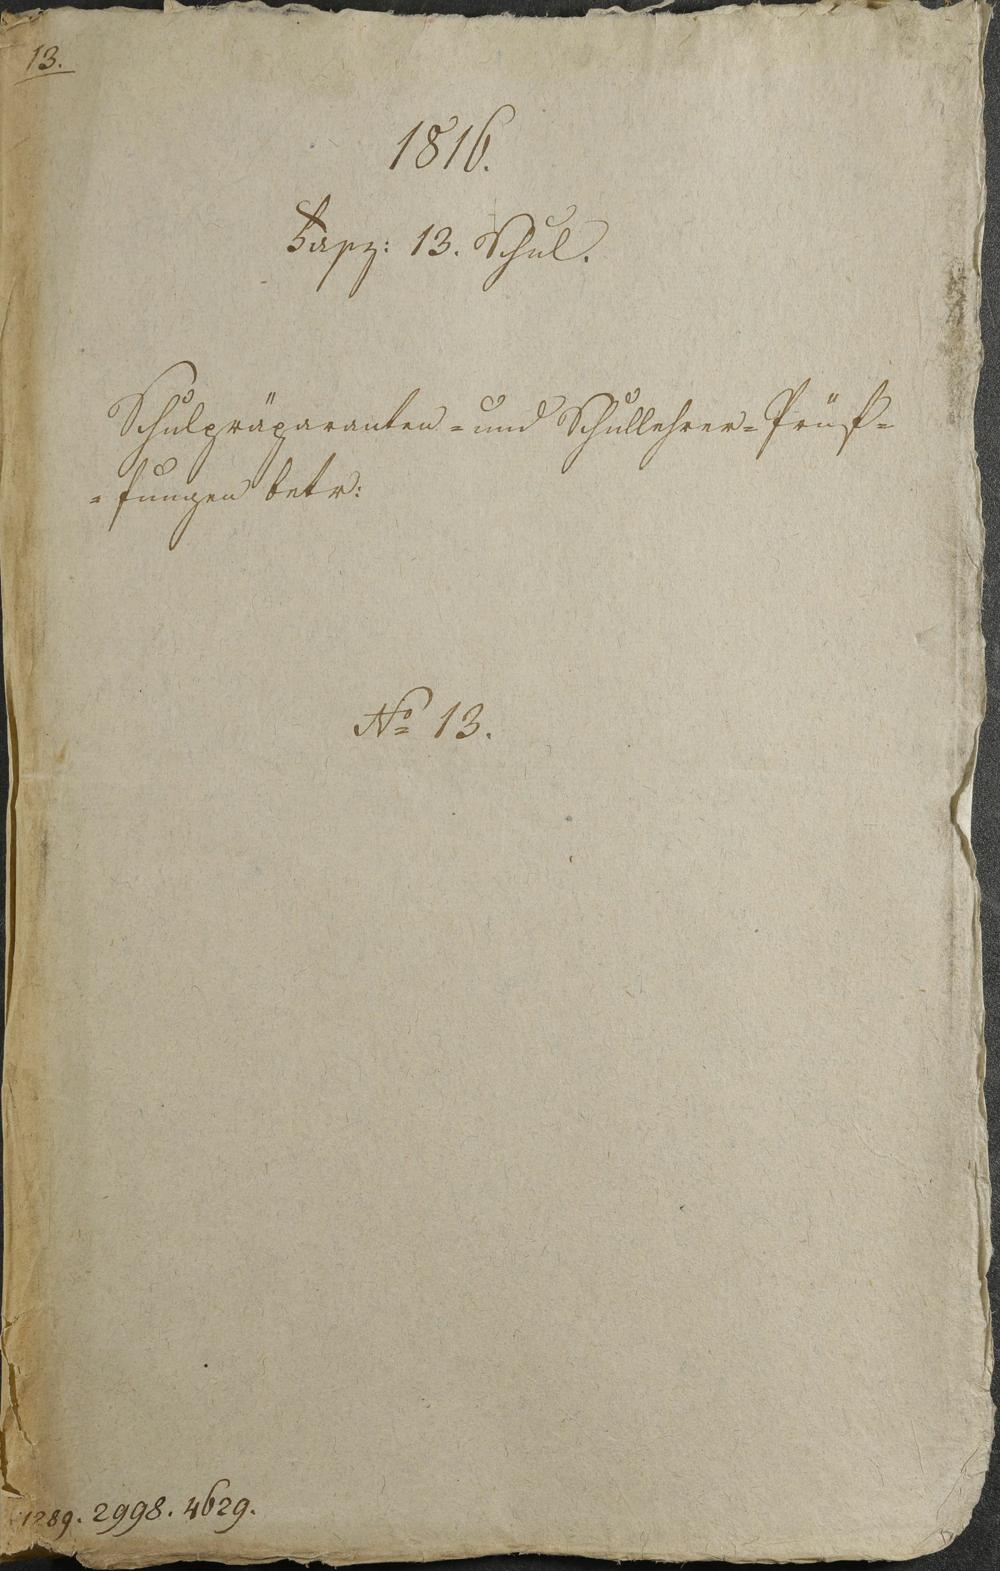 13.
1816.
Fasz: 13. Schul.
Schulpräparanten- und Schullehrer-Prüf-
-fungen betr:
No 13.
1289. 2998. 4629.